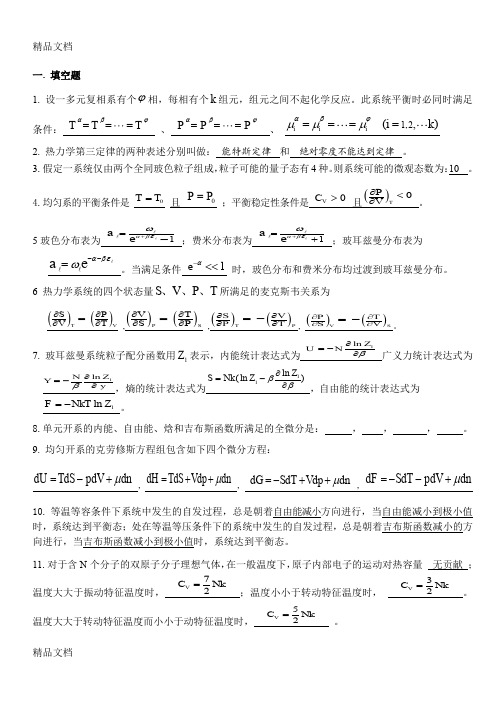 精品文档
一. 填空题
1. 设一多元复相系有个φ相，每相有个k组元，组元之间不起化学反应。此系统平衡时必同时满足
条件： T^α = T^β = ⋯ = T^φ 、 P^α = P^β = ⋯ = P^φ 、 μ_i^α = μ_i^β = ⋯ = μ_i^φ (i = 1,2,⋯k)
2. 热力学第三定律的两种表述分别叫做： 能特斯定律 和 绝对零度不能达到定律 。
3.假定一系统仅由两个全同玻色粒子组成，粒子可能的量子态有4种。则系统可能的微观态数为：10 。
4.均匀系的平衡条件是 T = T_0 且 P = P_0 ；平衡稳定性条件是 C_V > 0 且 (∂P/∂V)_T < 0 。
5玻色分布表为 a_l = ω_l/(e^(α+βε_l) − 1) ；费米分布表为 a_l = ω_l/(e^(α+βε_l) + 1) ；玻耳兹曼分布表为
a_l = ω_l e^(−α−βε_l) 。当满足条件 e^(−α) << 1 时，玻色分布和费米分布均过渡到玻耳兹曼分布。
6 热力学系统的四个状态量S、V、P、T所满足的麦克斯韦关系为
(∂S/∂V)_T = (∂P/∂T)_V ,(∂V/∂S)_P = (∂T/∂P)_S ,(∂S/∂P)_T = −(∂V/∂T)_P ,(∂P/∂S)_V = −(∂T/∂V)_S 。
7. 玻耳兹曼系统粒子配分函数用Z_1表示，内能统计表达式为 U = −N ∂ln Z_1/∂β 广义力统计表达式为
Y = −(N/β) ∂ln Z_1/∂y ，熵的统计表达式为 S = Nk(ln Z_1 − β ∂ln Z_1/∂β) ，自由能的统计表达式为
F = −NkT ln Z_1 。
8.单元开系的内能、自由能、焓和吉布斯函数所满足的全微分是： ， ， ， 。
9. 均匀开系的克劳修斯方程组包含如下四个微分方程：
dU = TdS − pdV + μdn , dH = TdS + Vdp + μdn , dG = −SdT + Vdp + μdn , dF = −SdT − pdV + μdn
10. 等温等容条件下系统中发生的自发过程，总是朝着自由能减小方向进行，当自由能减小到极小值
时，系统达到平衡态；处在等温等压条件下的系统中发生的自发过程，总是朝着吉布斯函数减小的方
向进行，当吉布斯函数减小到极小值时，系统达到平衡态。
11.对于含N个分子的双原子分子理想气体，在一般温度下，原子内部电子的运动对热容量 无贡献 ；
温度大大于振动特征温度时， C_V = (7/2)Nk ；温度小小于转动特征温度时， C_V = (3/2)Nk 。
温度大大于转动特征温度而小小于动特征温度时， C_V = (5/2)Nk 。
精品文档